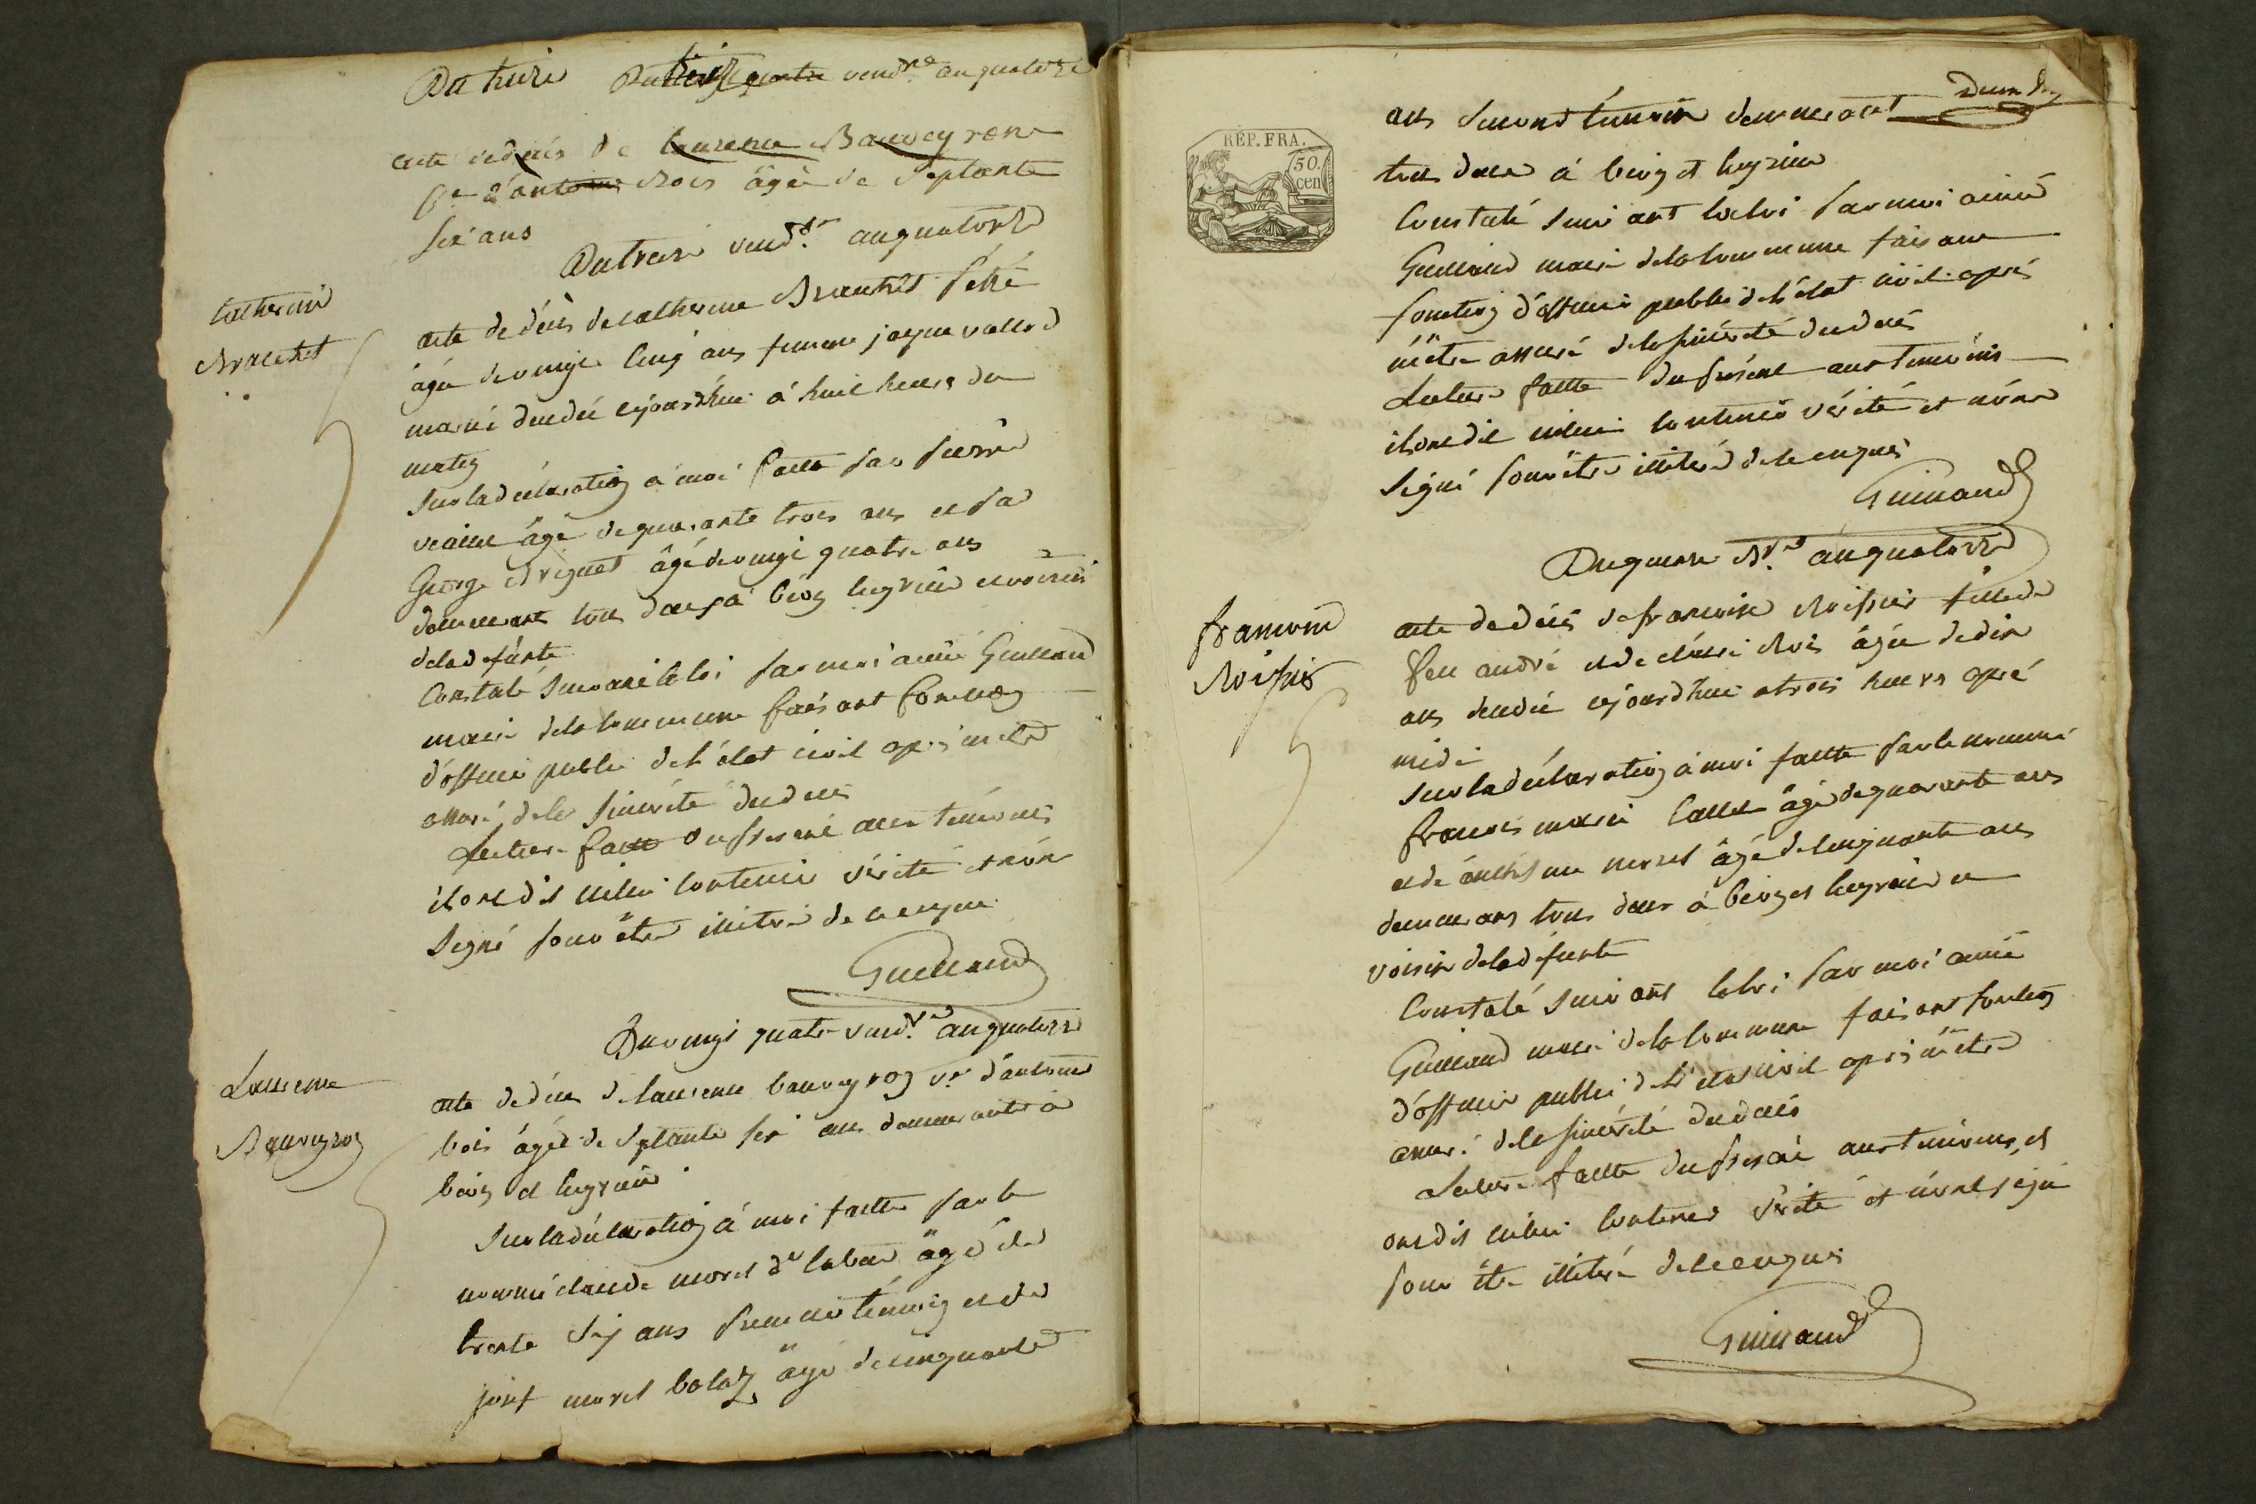 Du treize vend.re an quatorze
acte de décés de laurence Bauveyron
ve d'antoine Bois âgée de septante
six ans
Du treize vend.re an quatorze
Catherine
Brachet
acte de décés de catherine Brachet
âgée de vingt cinq ans femme jaque
marié décédée cejourdhui à huit heures du
matin
sur la déclaration à moi faitte par pierre
âgé de quarante trois ans et par
George âgé de vingt quatre ans
demeurants tous deux à béon luyrieu et voisins
de la défunte
Constaté suivant la loi par moi aimé Guilland
maire de la commune faisant fonction
d'officier public de l'état civil après m'être
assuré de la sincérité du décés
Lecture faitte du présent aux témoins
ils ont dit icelui contenir vérité et n'ont
signé pour être illitéré de ce enquis
Guilland
Du vingt quatre vend.re an quatorze
Laurence
Bauveyron
acte de décés de laurence bauveyron ve d'antoine
bois âgée de septante six ans demeurante à
béon et luyrieu
sur la déclaration à moi faitte par le
nommé claude morel dt âgé de
trente six ans premier témoin et de
josef morel âgé de cinquante
RÉP. FRA.
50.
cen
ans second témoin demeurant
tous deux à béon et luyrieu
Constaté suivant la loi par moi aimé
Guilland maire de la commune faisant
fonction d'officier public de l'état civil après
m'être assuré de la sincérité du décés
Lecture faitte du présent aux témoins
ils ont dit icelui contenir vérité et n'ont
signé pour être illitéré de ce enquis
Guilland
Du quinze B.re an quatorze
francoise
Roissier
acte de décés de francoise Roissier fille de
feu andré et de Bois âgée de dix
ans décédée cejourdhui à trois heures après
midi
sur la déclaration à moi faitte par le nommé
francois marie âgé de quarante ans
et de morel âgé de cinquante ans
demeurans tous deux à béon et luyrieu et
voisin de la défunte
Constaté suivant la loi par moi aimé
Guilland maire de la commune faisant fonction
d'officier public de l'état civil après m'être
assuré de la sincérité du décés
Lecture faitte du présent aux témoins ils
ont dit icelui contenir vérité et n'ont signé
pour être illitéré de ce enquis
Guilland